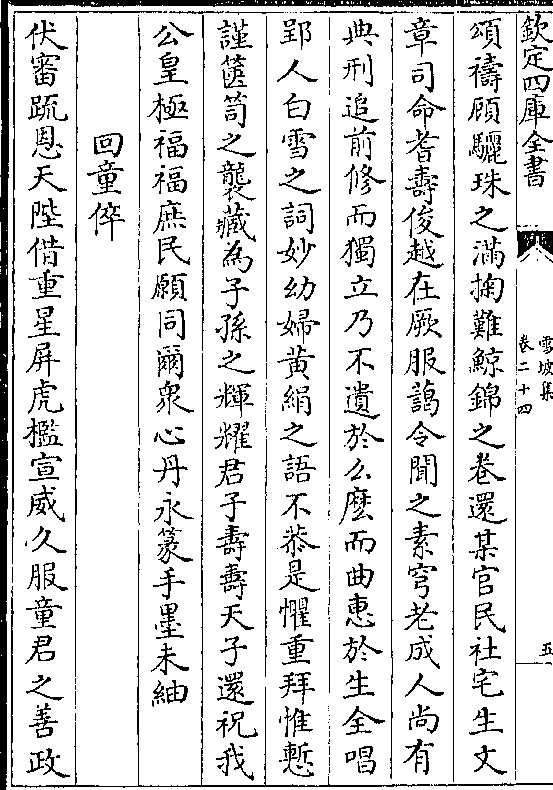 欽定四庫全書
雪坡集
卷二十四
五
頌禱願驪珠之滿掬難鯨錦之卷還某官民社宅生文
章司命耆壽俊越在厥服藹令聞之素穹老成人尚有
典刑追前修而獨立乃不遺於么麽而曲惠於生全唱
郢人白雪之詞妙幼婦黄絹之語不恭是懼重拜惟慙
謹篋笥之襲藏為子孫之輝耀君子壽壽天子還祝我
公皇極福福庶民願同爾衆心丹永篆手墨未紬
回童倅
伏審疏恩天陛借重星屏虎檻宣威久服童君之善政